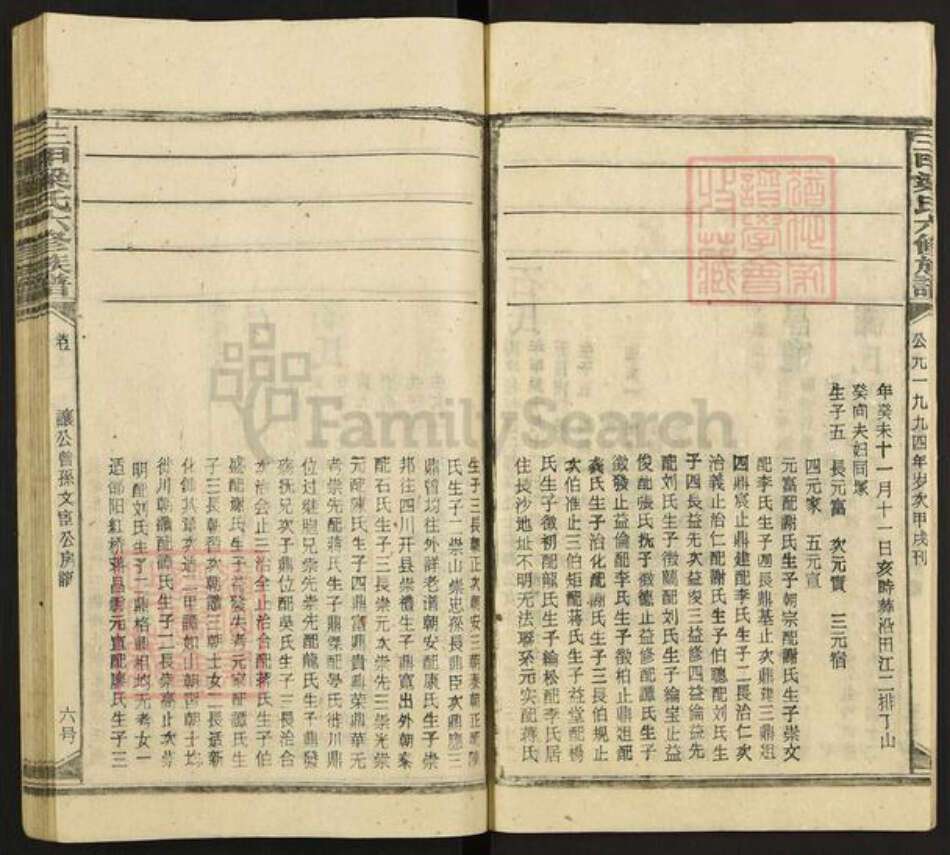 三甲梁氏六修族譜
公元一九九四年岁次甲戌刊
年癸未十一月十一日亥時葬沿田江二排丁山
癸向夫妇同塚
生子五　長元富　次元實　三元宿
四元家　五元宣
元富配謝氏生子朝宗配謝氏生子崇文
配李氏生子四長鼎基止次鼎建三鼎诅
四鼎宸止鼎建配李氏生子二長治仁次
治義止治仁配謝氏生子伯聰配刘氏生
子四長益先次益俊三益修四益綸益先
配刘氏生子徵蘭配刘氏生子綸宝止益
俊配張氏抚子徵德止益修配譚氏生子
徵發止益倫配李氏生子徵柏止鼎诅配
龚氏生子治化配謝氏生子三長伯規止
次伯准止三伯矩配蒋氏生子益堂配楊
氏生子徵初配龍氏生子綸松配李氏居
住長沙地址不明无法联系元实配蒋氏
生子三長朝正次朝安三朝泰朝正配陳
氏生子二崇山崇忠孫長鼎臣次鼎應三
鼎曾均往外祥老谱朝安配康氏生子崇
邦往四川开县崇禮生子鼎寬出外朝泰
配石氏生子三長崇元次崇先三崇光崇
元配陳氏生子四鼎富鼎貴鼎荣鼎華无
考崇先配蒋氏生子鼎傑配學氏徙川鼎
位过继照兄崇先崇先配龍氏生子鼎發
殇抚兄次子鼎位配吳氏生子三長治合
次治会止三治全止治合配蒋氏生子伯
盛配謝氏生子益發失考元家配譚氏生
子三長朝哲次朝謙三朝士女二長适新
化
徙川朝謙配譚氏生子二長崇高止次崇
明配刘氏生子二鼎格鼎相地无考女一
适邵阳紅桥蒋昌云元宣配廖氏生子三
三甲梁氏六修族譜
讓公曾孫文宦公房齒
六号
FamilySearch